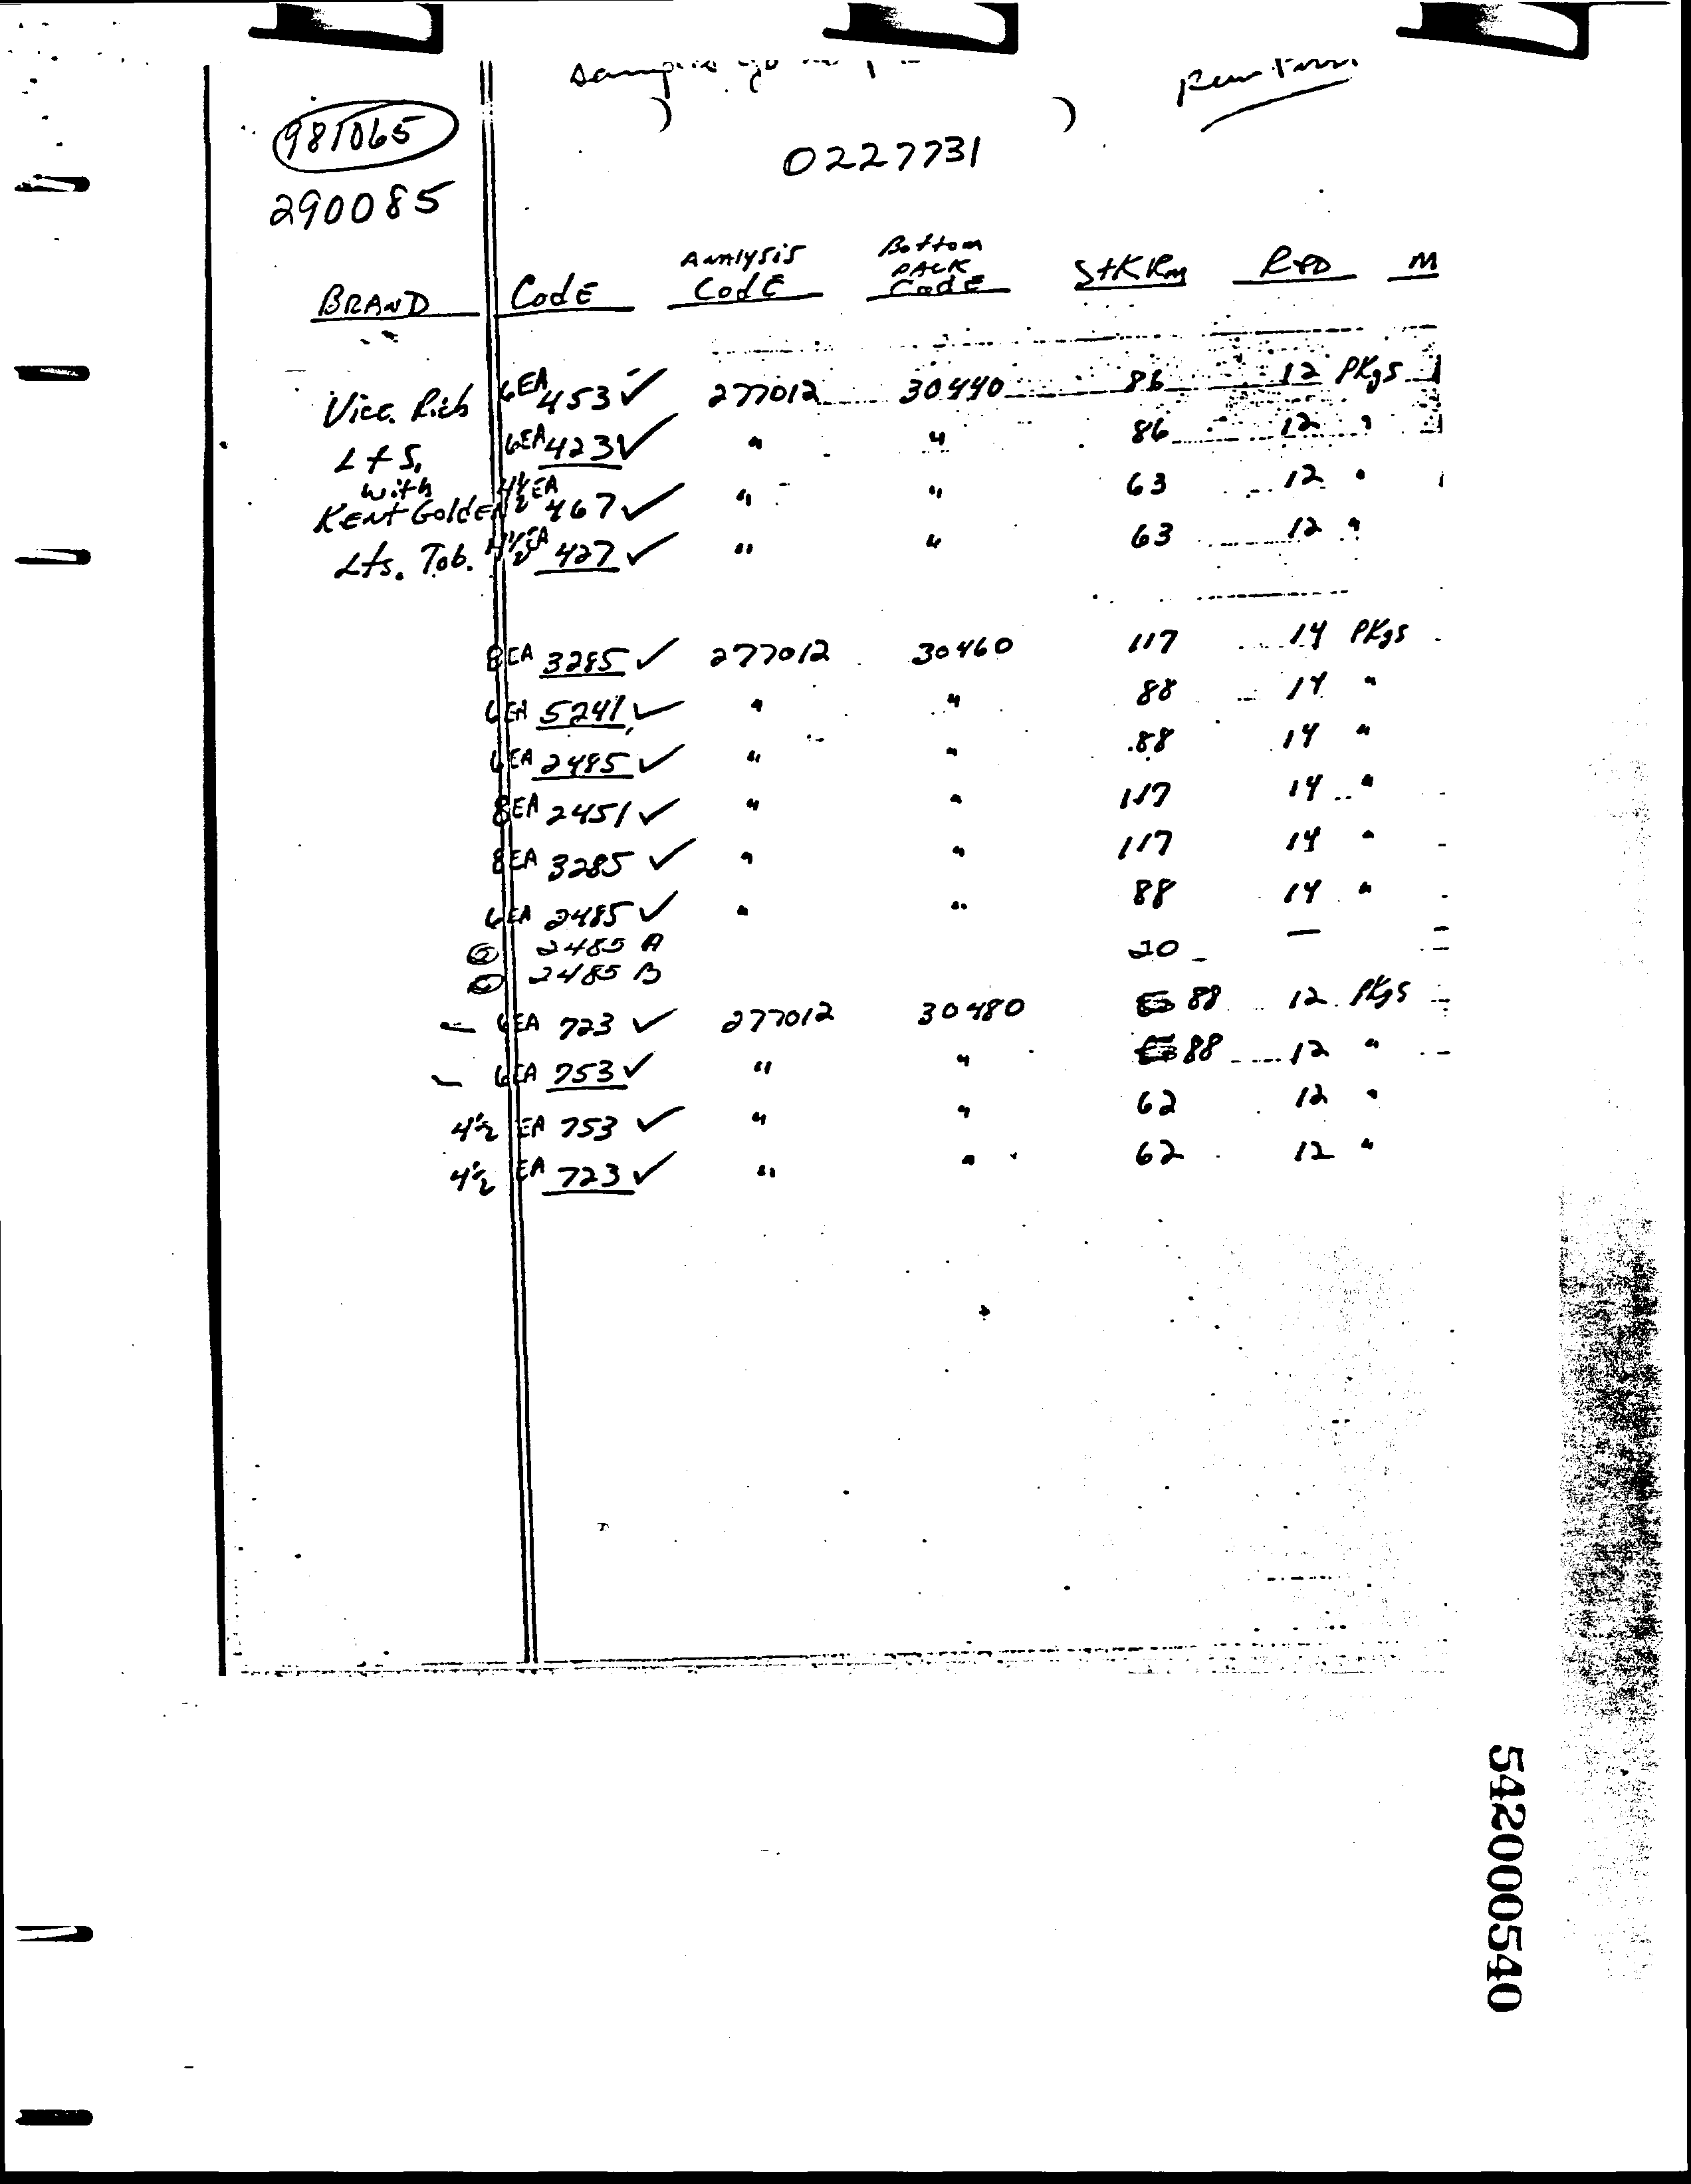 981065
0227731
290085
BRAND Code Analysis Code Bottom PACK Code StKRm R&D M
Vice. Rich 6EA 453 ✓ 277012 30440 86 12 PKgs
Lts, 6EA 423 ✓ " " 86 12 "
with
Kent Golden 4½ EA 467 ✓ " " 63 12 "
Lts. Tob. 4½ EA 427 ✓ " " 63 12 "
8EA 3285 ✓ 277012 30460 117 14 PKgs
6EA 5241 ✓ " " 88 14 "
6EA 2485 ✓ " " 88 14 "
8EA 2451 ✓ " " 117 14 "
8EA 3285 ✓ " " 117 14 "
6EA 2485 ✓ " " 88 14 "
2485 A 20 —
2485 B
6EA 723 ✓ 277012 30480 88 12 PKgs
6EA 753 ✓ " " 88 12 "
4½ EA 753 ✓ " " 62 12 "
4½ EA 723 ✓ " " 62 12 "
542000540